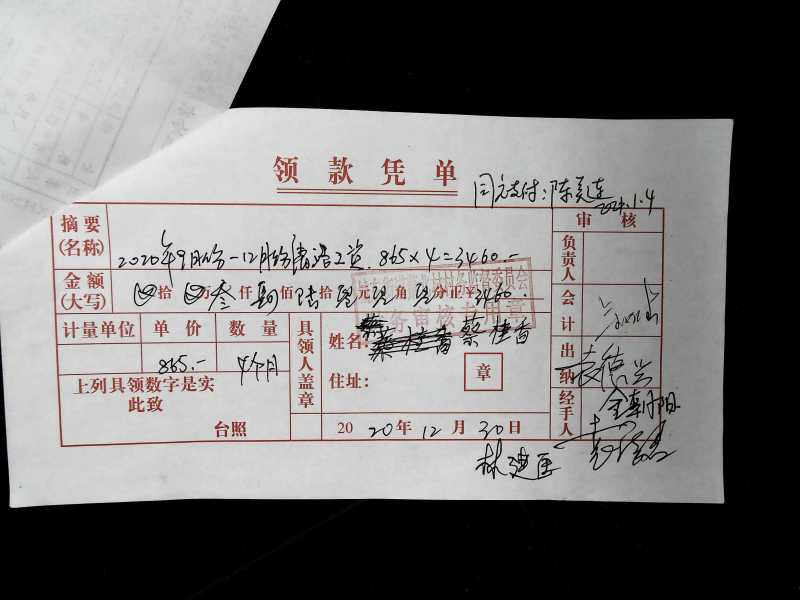 领款凭单
同意支付:陈美连
2021.1.4
摘要(名称)
2020年9月份-12月份清洁工资. 865×4=3460.-
审核
负责人
金额(大写)
拾 万 叁 仟 肆 佰 陆 拾 零 元 零 角 零 分正 ¥3460.-
村务监督委员会
财务审核专用章
会计
计量单位 单价 数量
865.- 4个月
具领人盖章
姓名: 蔡桂香
住址:
章
出纳
袁德兴
上列具领数字是实
此致
台照
2020年12月30日
经手人
金朝阳
林建国